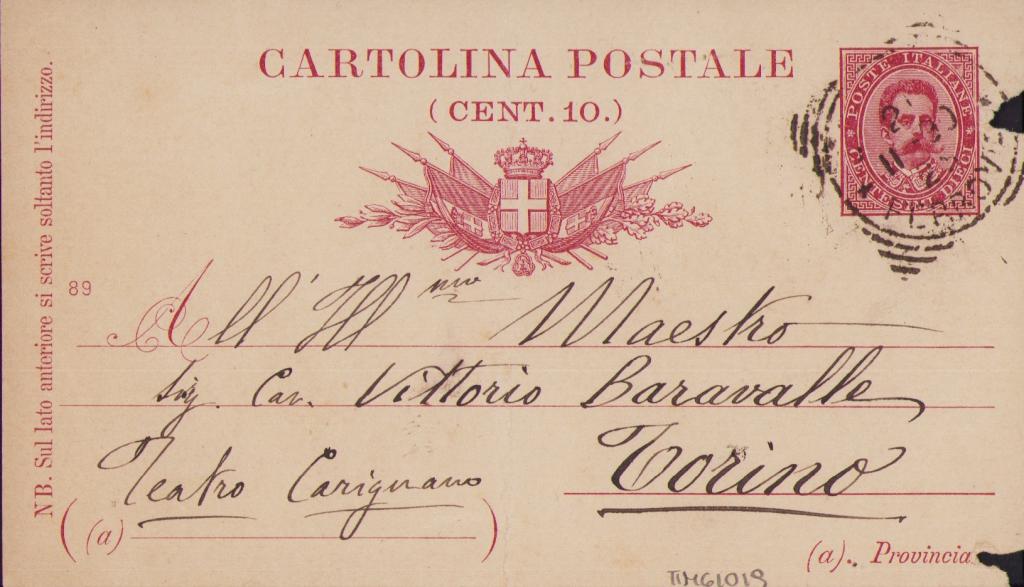 CARTOLINA POSTALE
(CENT. 10.)
POSTE ITALIANE
CENTESIMI DIECI
NB. Sul lato anteriore si scrive soltanto l'indirizzo.
89
All' Ill mo Maestro
Sig. Cav. Vittorio Baravalle
Teatro Carignano
Torino
(a)
(a).. Provincia